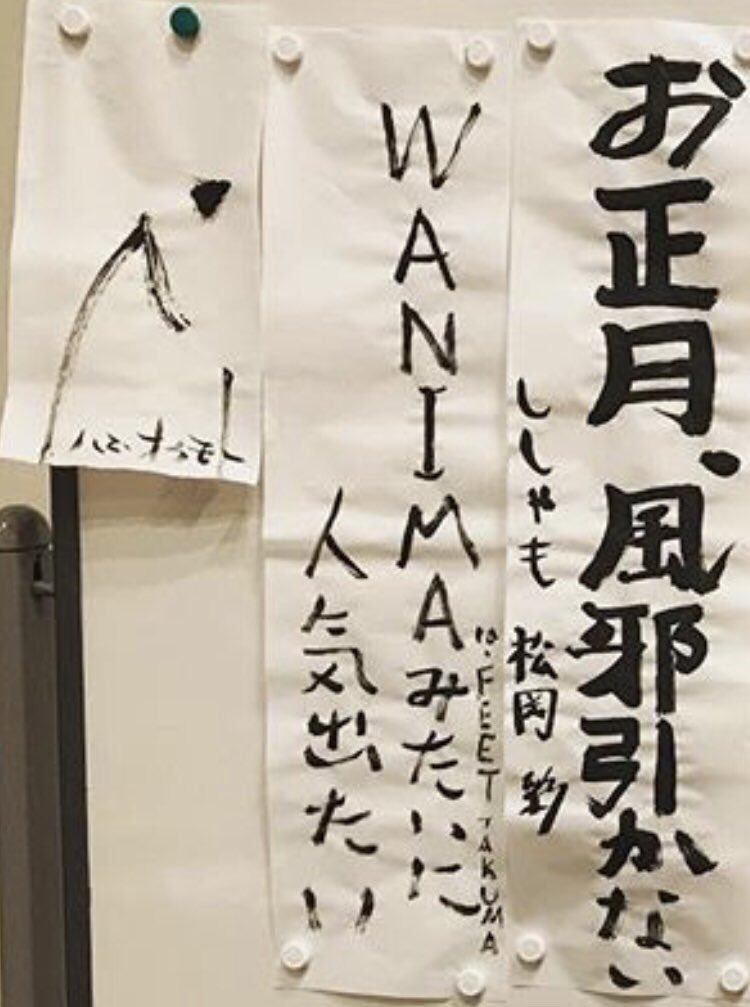 お正月、風邪引かない
ししゃも 松岡 彩
WANIMAみたいに
人気出たい
10-FEET TAKUMA